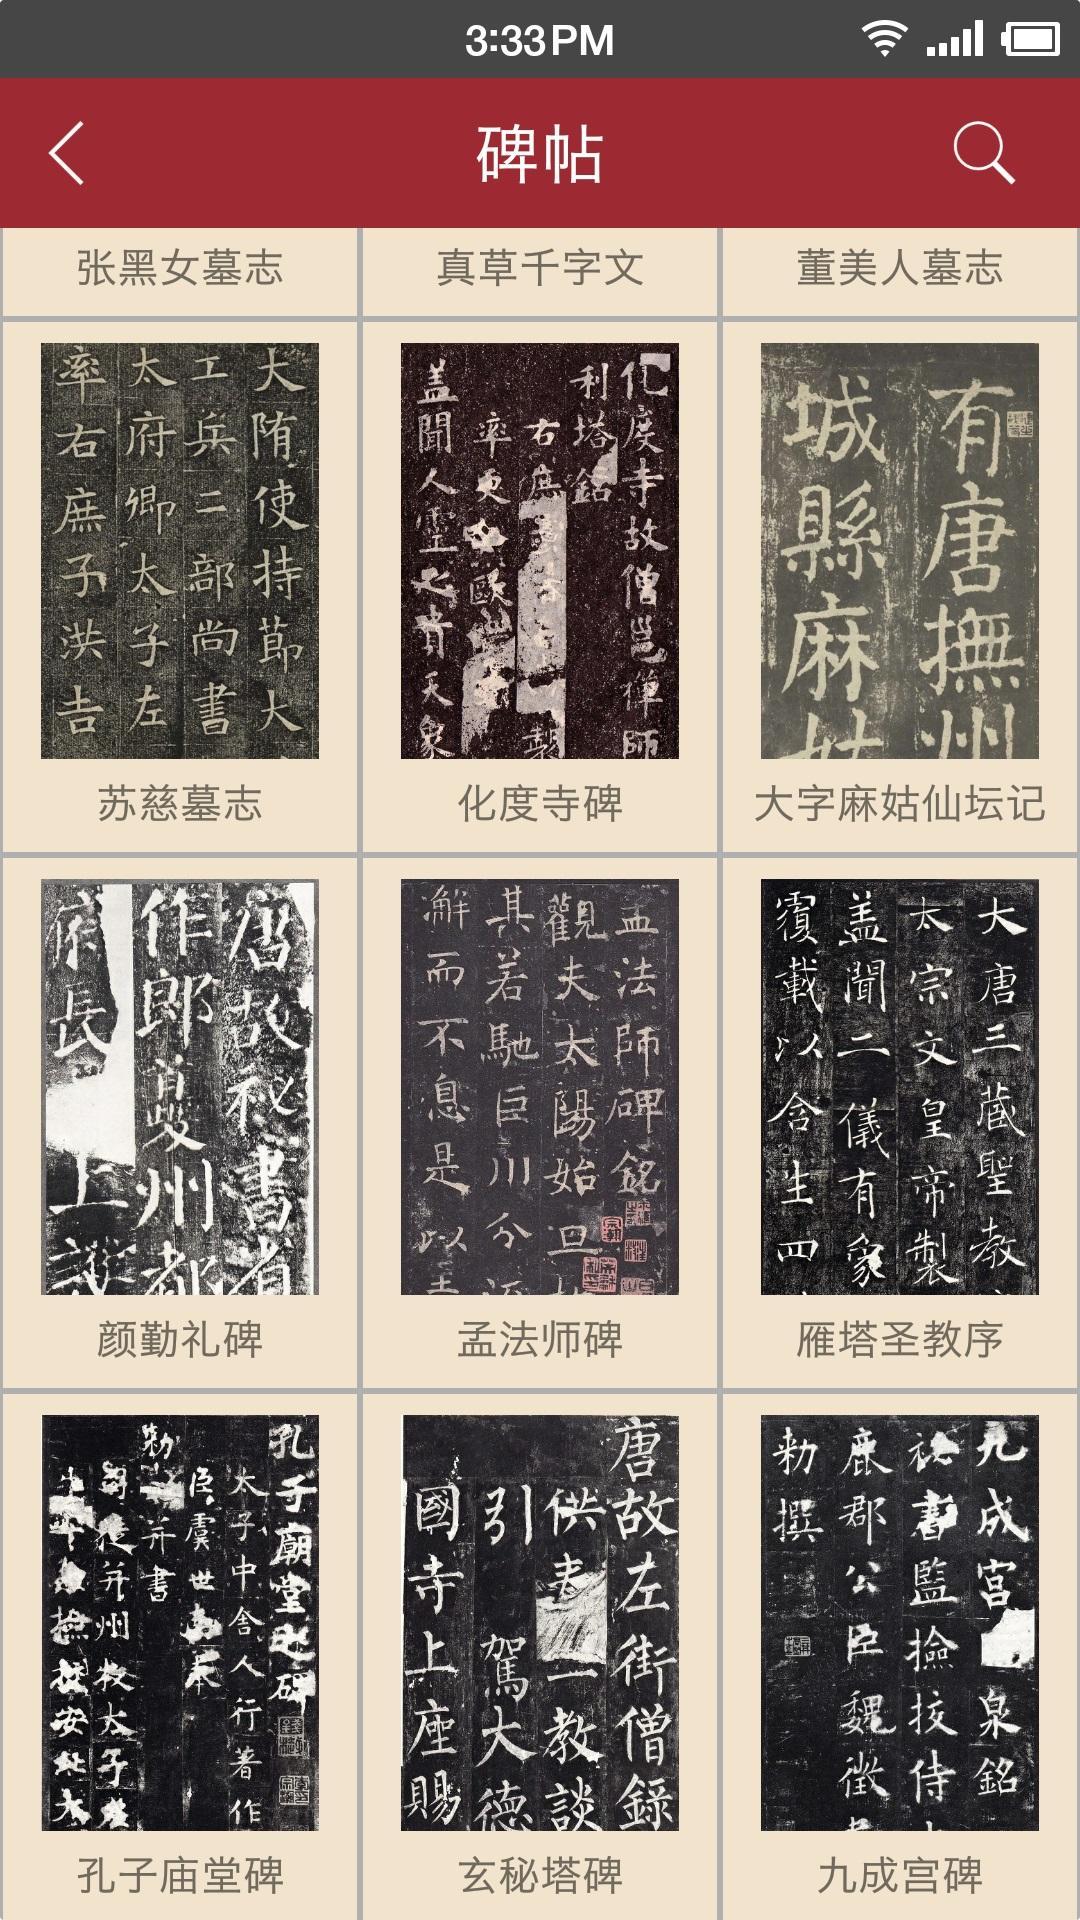 3:33PM
碑帖
张黑女墓志
真草千字文
董美人墓志
大隋使持節大
工兵二部尚書
太府卿太子左
率右庶子洪吉
苏慈墓志
化度寺故僧邕禅師
利塔銘
右庶
率更
盖聞人靈之貴天象
化度寺碑
有唐撫州
城縣麻姑
大字麻姑仙坛记
唐故祕書省
作郎夔州都
府長
上護
颜勤礼碑
孟法師碑銘
觀夫太陽始旦
其若馳巨川分
澥而不息是以
孟法师碑
大唐三藏聖教
太宗文皇帝製
盖聞二儀有象
覆載以含生四
雁塔圣教序
孔子廟堂之碑
太子中舎人行著作
臣虞世南奉
勅
并書
司徒并州牧太子左
撿挍安北大
孔子庙堂碑
唐故左街僧録
供奉
一教談
引
駕大德
國寺上座賜
玄秘塔碑
九成宫
泉銘
祕書監撿挍侍
鹿郡公臣魏徵
勅撰
九成宫碑